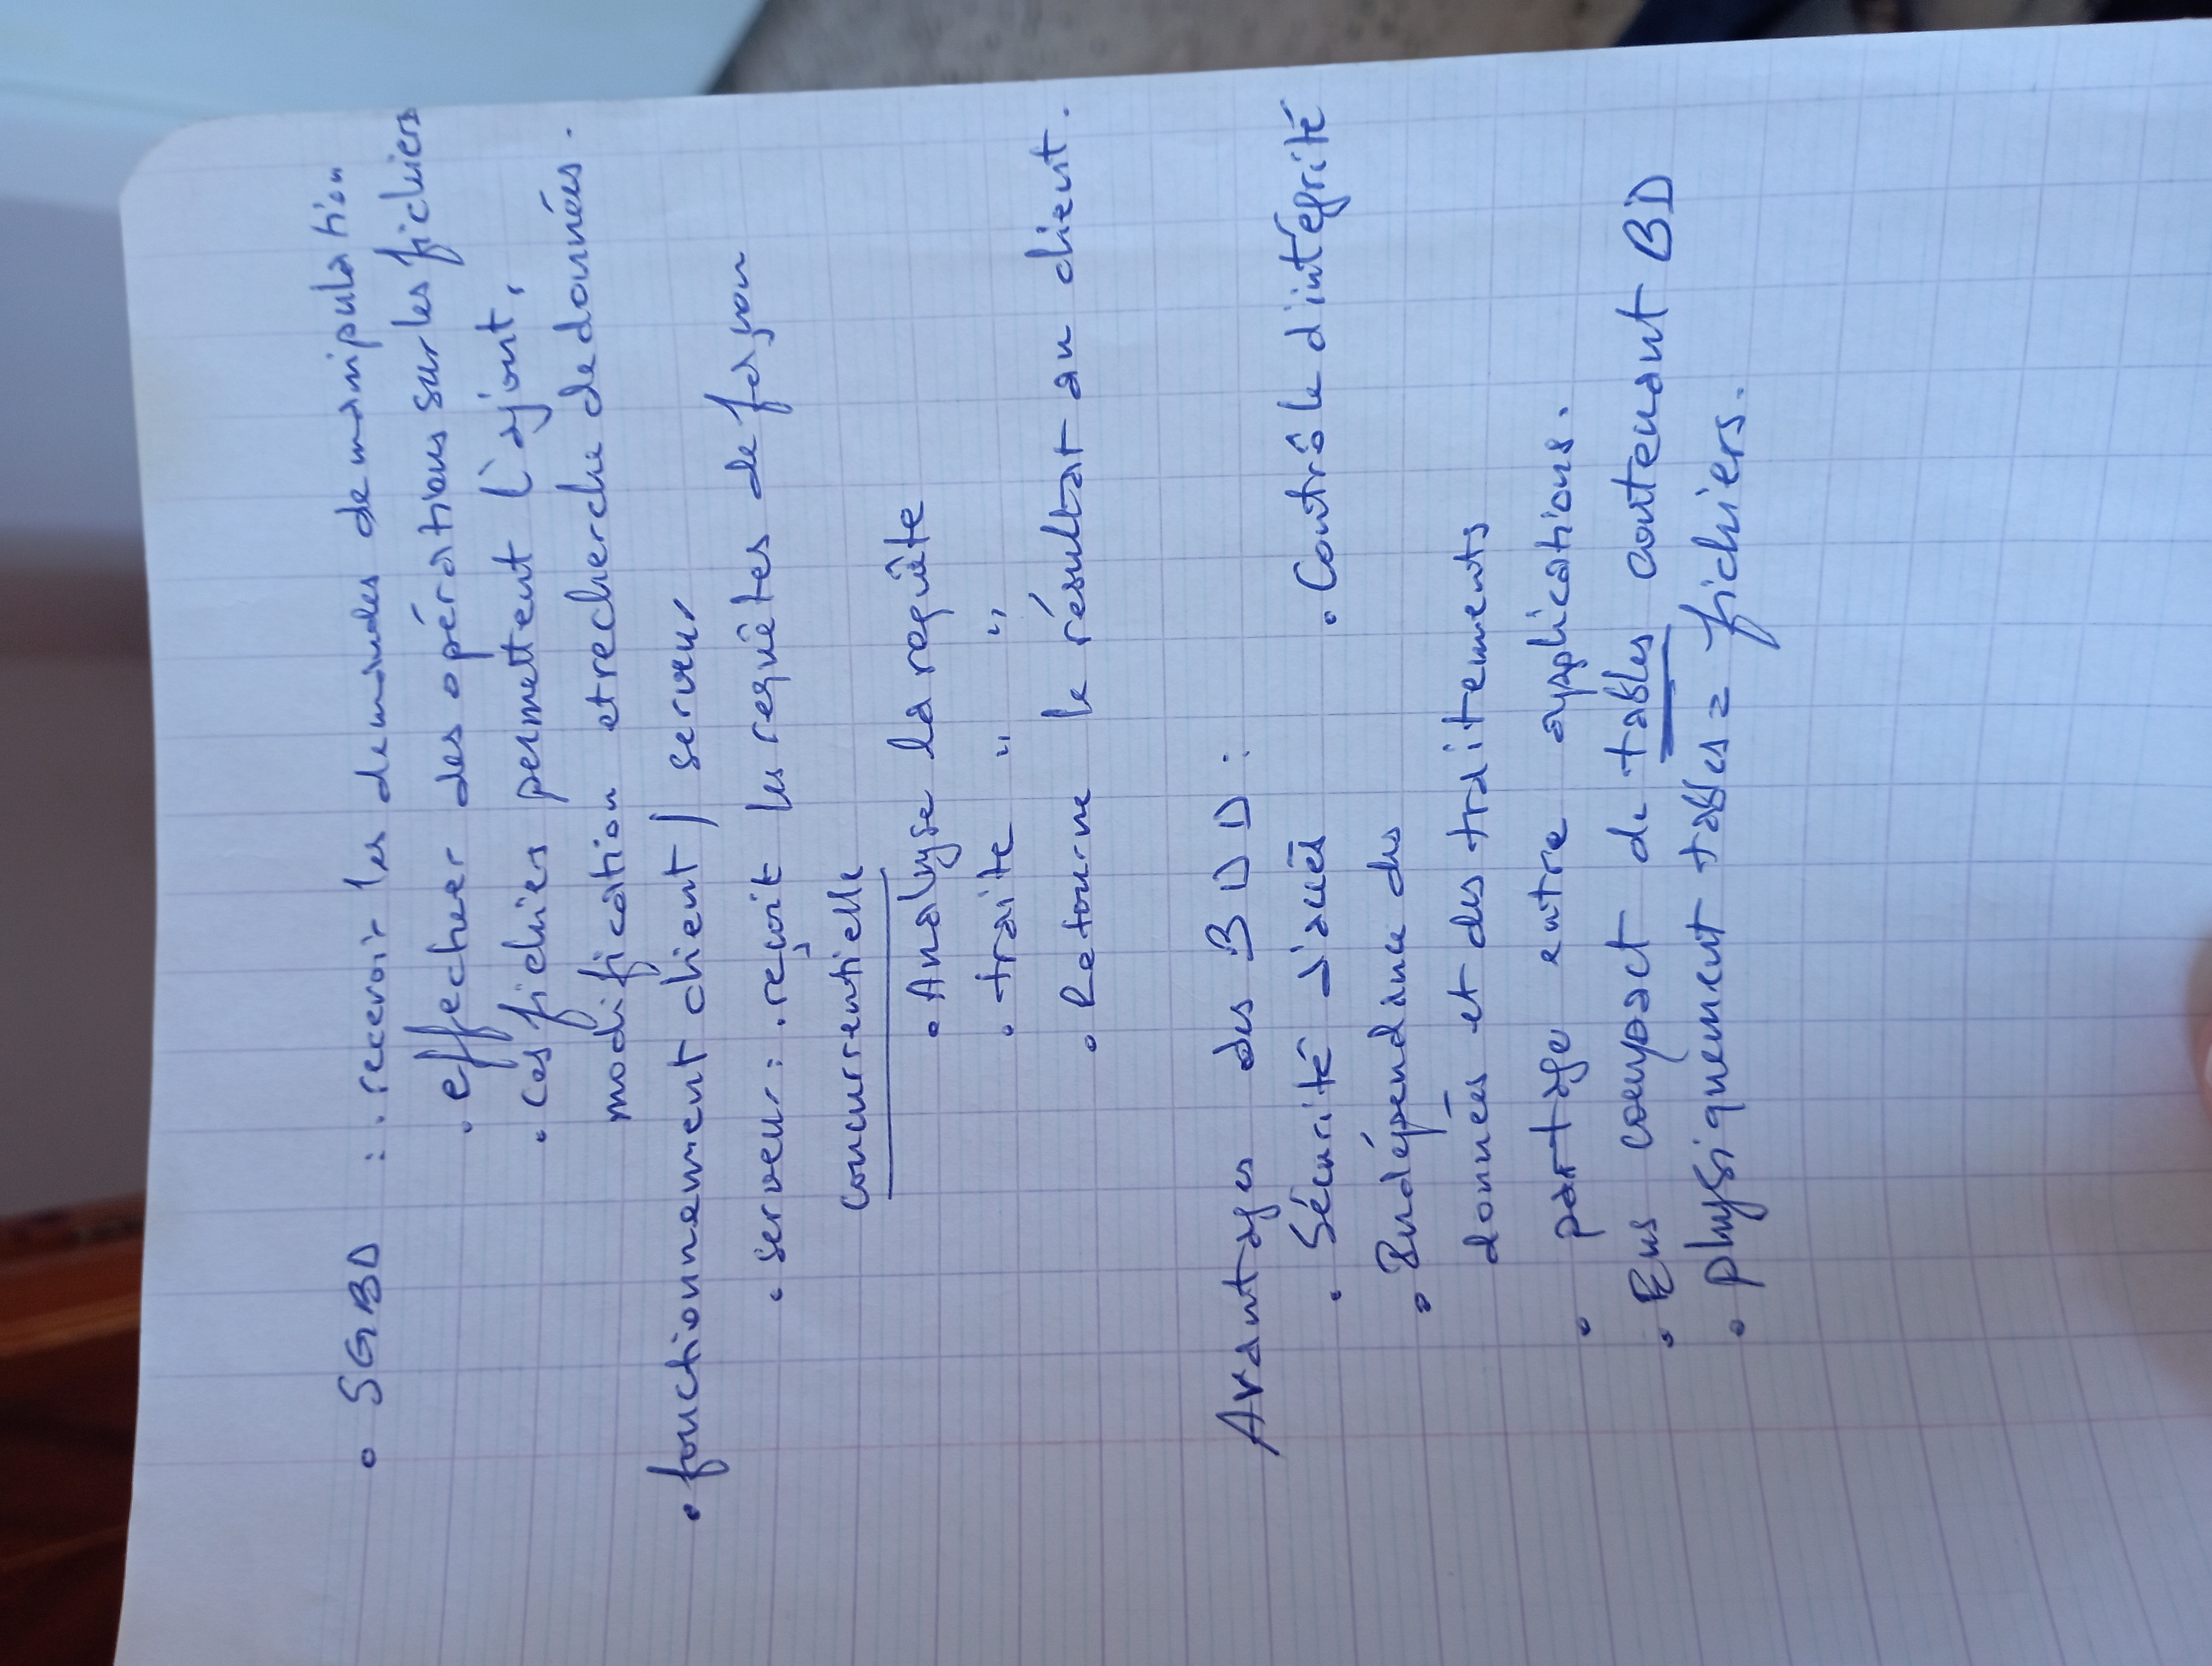 • SGBD : . recevoir les demandes de manipulation
. effectuer des opérations sur les fichiers
. ces fichiers permettent l'ajout,
modification et recherche de données.
. fonctionnement client / serveur
. serveur : . reçoit les requêtes de façon
concurrentielle
. Analyse la requête
. traite " "
. Retourne le résultat au client.
Avantages des BDD :
. Sécurité d'accès . Contrôle d'intégrité
. Indépendance des
données et des traitements
. partage entre applications.
. Ens compact de tables contenant BD
. physiquement tables = fichiers.